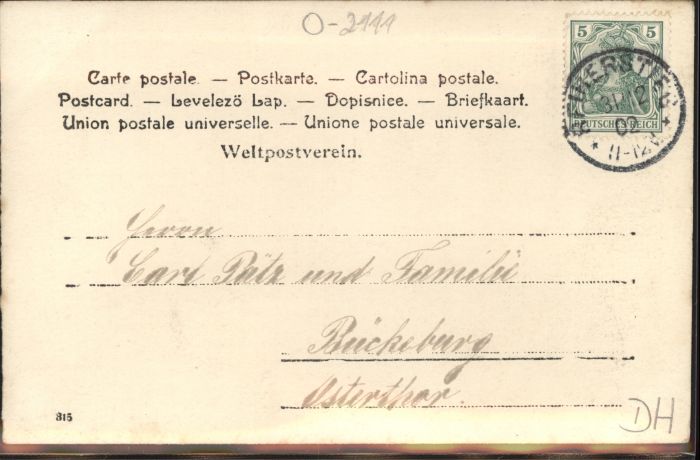 O-2111
Carte postale. — Postkarte. — Cartolina postale.
Postcard. — Levelező Lap. — Dopisnice. — Briefkaart.
Union postale universelle. — Unione postale universale.
Weltpostverein.
5 5
DEUTSCHES REICH
31 12
11-12V.
Herrn
Carl Pätz und Familie
Bückeburg
Osterthor.
315
DH